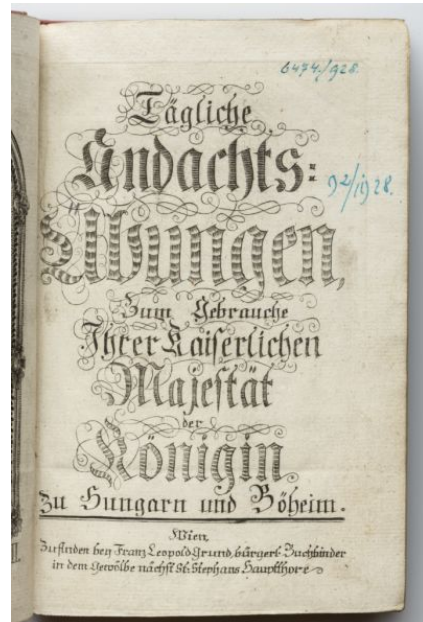 6474./928.
Tägliche
Andachts=
92/1928.
Übungen,
Zum Gebrauche
Ihrer Kaiserlichen
Majestät
der
Königin
zu Hungarn und Böheim.
Wien
Zu finden bey Franz Leopold Grund, bürgerl: Buchbinder
in dem Gewölbe nächst St: Stephans Haupthore